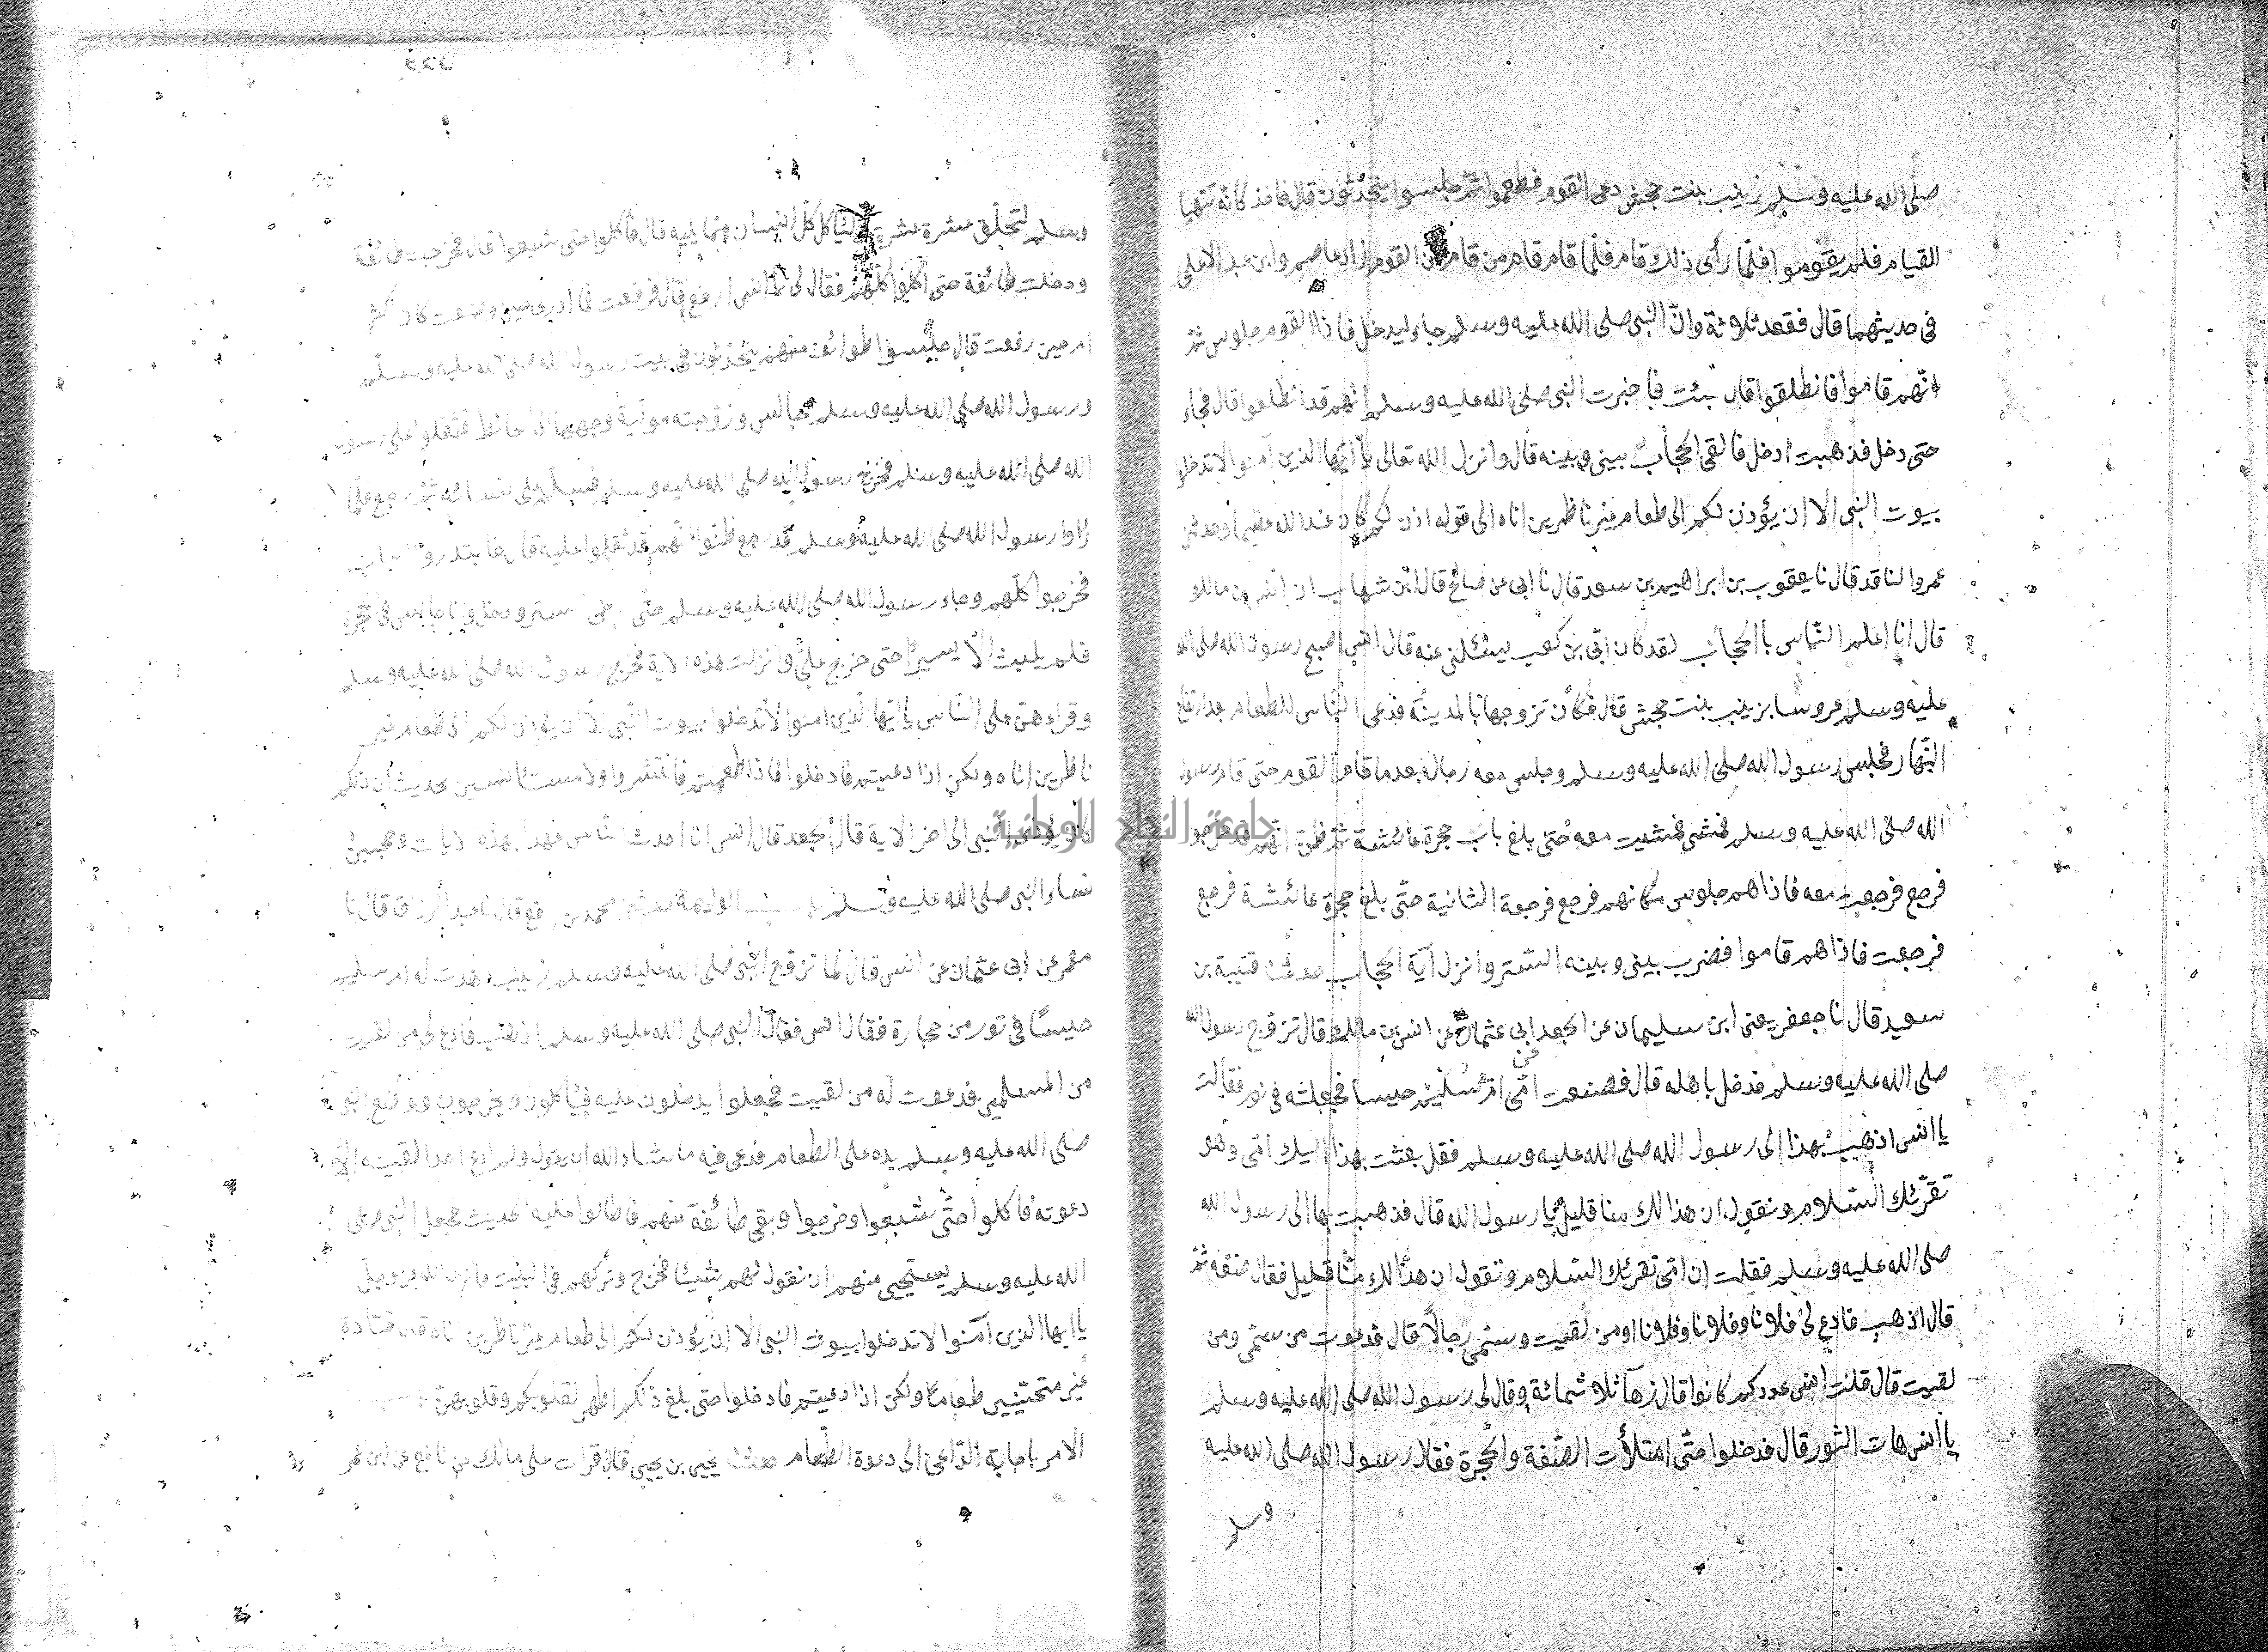 صلى الله عليه وسلم زينب بنت جحش دعى القوم فطعموا ثم جلسوا يتحدثون قال فاخذ كانه يتهيا
للقيام فلم يقوموا فلما رأى ذلك قام فلما قام قام من قام من القوم زاد عاصم وابن عبد الاعلى
فى حديثهما قال فقعد ثلاثة وان النبى صلى الله عليه وسلم جاء ليدخل فاذا القوم جلوس ثم
انهم قاموا فانطلقوا قال فاخبرت النبى صلى الله عليه وسلم انهم قد انطلقوا قال فجاء
حتى دخل فذهبت ادخل فالقى الحجاب بينى وبينه قال وانزل الله تعالى يا ايها الذين آمنوا لاتدخلوا
بيوت النبى الا ان يؤذن لكم الى طعام غير ناظرين اناه الى قوله ان ذلكم كان عند الله عظيما وحدثنى
عمرو الناقد قال نا يعقوب بن ابراهيم بن سعد قال نا ابى عن صالح قال ابن شهاب ان انس بن مالك
قال انا اعلم الناس بالحجاب لقد كان ابى بن كعب يسئلنى عنه قال انس اصبح رسول الله صلى الله
عليه وسلم عروسا بزينب بنت جحش قال فكان تزوجها بالمدينة فدعى الناس للطعام بعد ارتفاع
النهار فجلس رسول الله صلى الله عليه وسلم وجلس معه رجال بعد ما قام القوم حتى قام رسول
الله صلى الله عليه وسلم فمشى فمشيت معه حتى بلغ باب حجرة عائشة ثم ظن انهم قد خرجوا
فرجع فرجعت معه فاذا هم جلوس مكانهم فرجع فرجعة الثانية حتى بلغ حجرة عائشة فرجع
فرجعت فاذا هم قاموا فضرب بينى وبينه الستر وانزل آية الحجاب حدثنا قتيبة بن
سعيد قال نا جعفر يعنى ابن سليمان عن الجعد ابى عثمان عن انس بن مالك قال تزوج رسول الله
صلى الله عليه وسلم فدخل باهله قال فصنعت امى ام سليم حيسا فجعلته فى تور فقالت
يا انس اذهب بهذا الى رسول الله صلى الله عليه وسلم فقل بعثت بهذا اليك امى وهو
تقرئك السلام وتقول ان هذا لك منا قليل يا رسول الله قال فذهبت بها الى رسول الله
صلى الله عليه وسلم فقلت ان امى تقرئك السلام وتقول ان هذا لك منا قليل فقال ضعه ثم
قال اذهب فادع لى فلانا وفلانا وفلانا ومن لقيت وسمى رجالا قال فدعوت من سمى ومن
لقيت قال قلت انس عددكم كانوا قال زهآ ثلاثمائة وقال لى رسول الله صلى الله عليه وسلم
يا انس هات التور قال فدخلوا حتى امتلأت الصفة والحجرة فقال رسول الله صلى الله عليه
وسلم
وسلم لتحلق عشرة عشرة وليأكل كل انسان مما يليه قال فأكلوا حتى شبعوا قال فخرجت طائفة
ودخلت طائفة حتى اكلوا كلهم فقال لى يا انس ارفع قال فرفعت فما ادرى حين وضعت كان اكثر
ام حين رفعت قال جلس طوائف منهم يتحدثون فى بيت رسول الله صلى الله عليه وسلم
ورسول الله صلى الله عليه وسلم جالس وزوجته مولية وجهها الى حائط فثقلوا على رسول
الله صلى الله عليه وسلم فخرج رسول الله صلى الله عليه وسلم فسلم على نسائه ثم رجع فلما
راوا رسول الله صلى الله عليه وسلم قد رجع ظنوا انهم قد ثقلوا عليه قال فابتدروا الباب
فخرجوا كلهم وجاء رسول الله صلى الله عليه وسلم حتى ارخى ستر ودخل وانا جالس فى حجرة
فلم يلبث الا يسيرا حتى خرج على وانزلت هذه الاية فخرج رسول الله صلى الله عليه وسلم
وقراءهن على الناس يا ايها الذين امنوا لاتدخلوا بيوت النبى الا ان يؤذن لكم الى طعام غير
ناظرين اناه ولكن اذا دعيتم فادخلوا فاذا طعمتم فانتشروا ولا مستانسين لحديث ان ذلكم
كان يؤذى النبى الى اخر الاية قال الجعد قال انس انا احدث الناس عهد بهذه الايات وحجبن
نساء النبى صلى الله عليه وسلم الوليمة حدثنى محمد بن رافع قال نا عبد الرزاق قال نا
معمر عن ابى عثمان عن انس قال لما تزوج النبى صلى الله عليه وسلم زينب اهدت له ام سليم
حيسا فى تور من حجارة فقال انس فقال النبى صلى الله عليه وسلم اذهب فادع لى من لقيت
من المسلمين فدعوت له من لقيت فجعلوا يدخلون عليه فيأكلون ويخرجون ووضع النبى
صلى الله عليه وسلم يده على الطعام فدعى فيه ما شاء الله ان يقول ولم ادع احدا لقيته الا
دعوته فاكلوا حتى شبعوا وخرجوا وبقى طائفة منهم فاطالوا عليه الحديث فجعل النبى صلى
الله عليه وسلم يستحيى منهم ان يقول لهم شيئا فخرج وتركهم فى البيت فانزل الله عز وجل
يا ايها الذين آمنوا لاتدخلوا بيوت النبى الا ان يؤذن لكم الى طعام غير ناظرين اناه قال قتادة
غير متحينين طعاما ولكن اذا دعيتم فادخلوا حتى بلغ ذلكم اطهر لقلوبكم وقلوبهن
الامر باجابة الداعى الى دعوة الطعام حدثنا يحيى بن يحيى قال قرات على مالك عن نافع عن ابن عمر
جامعة النجاح الوطنية